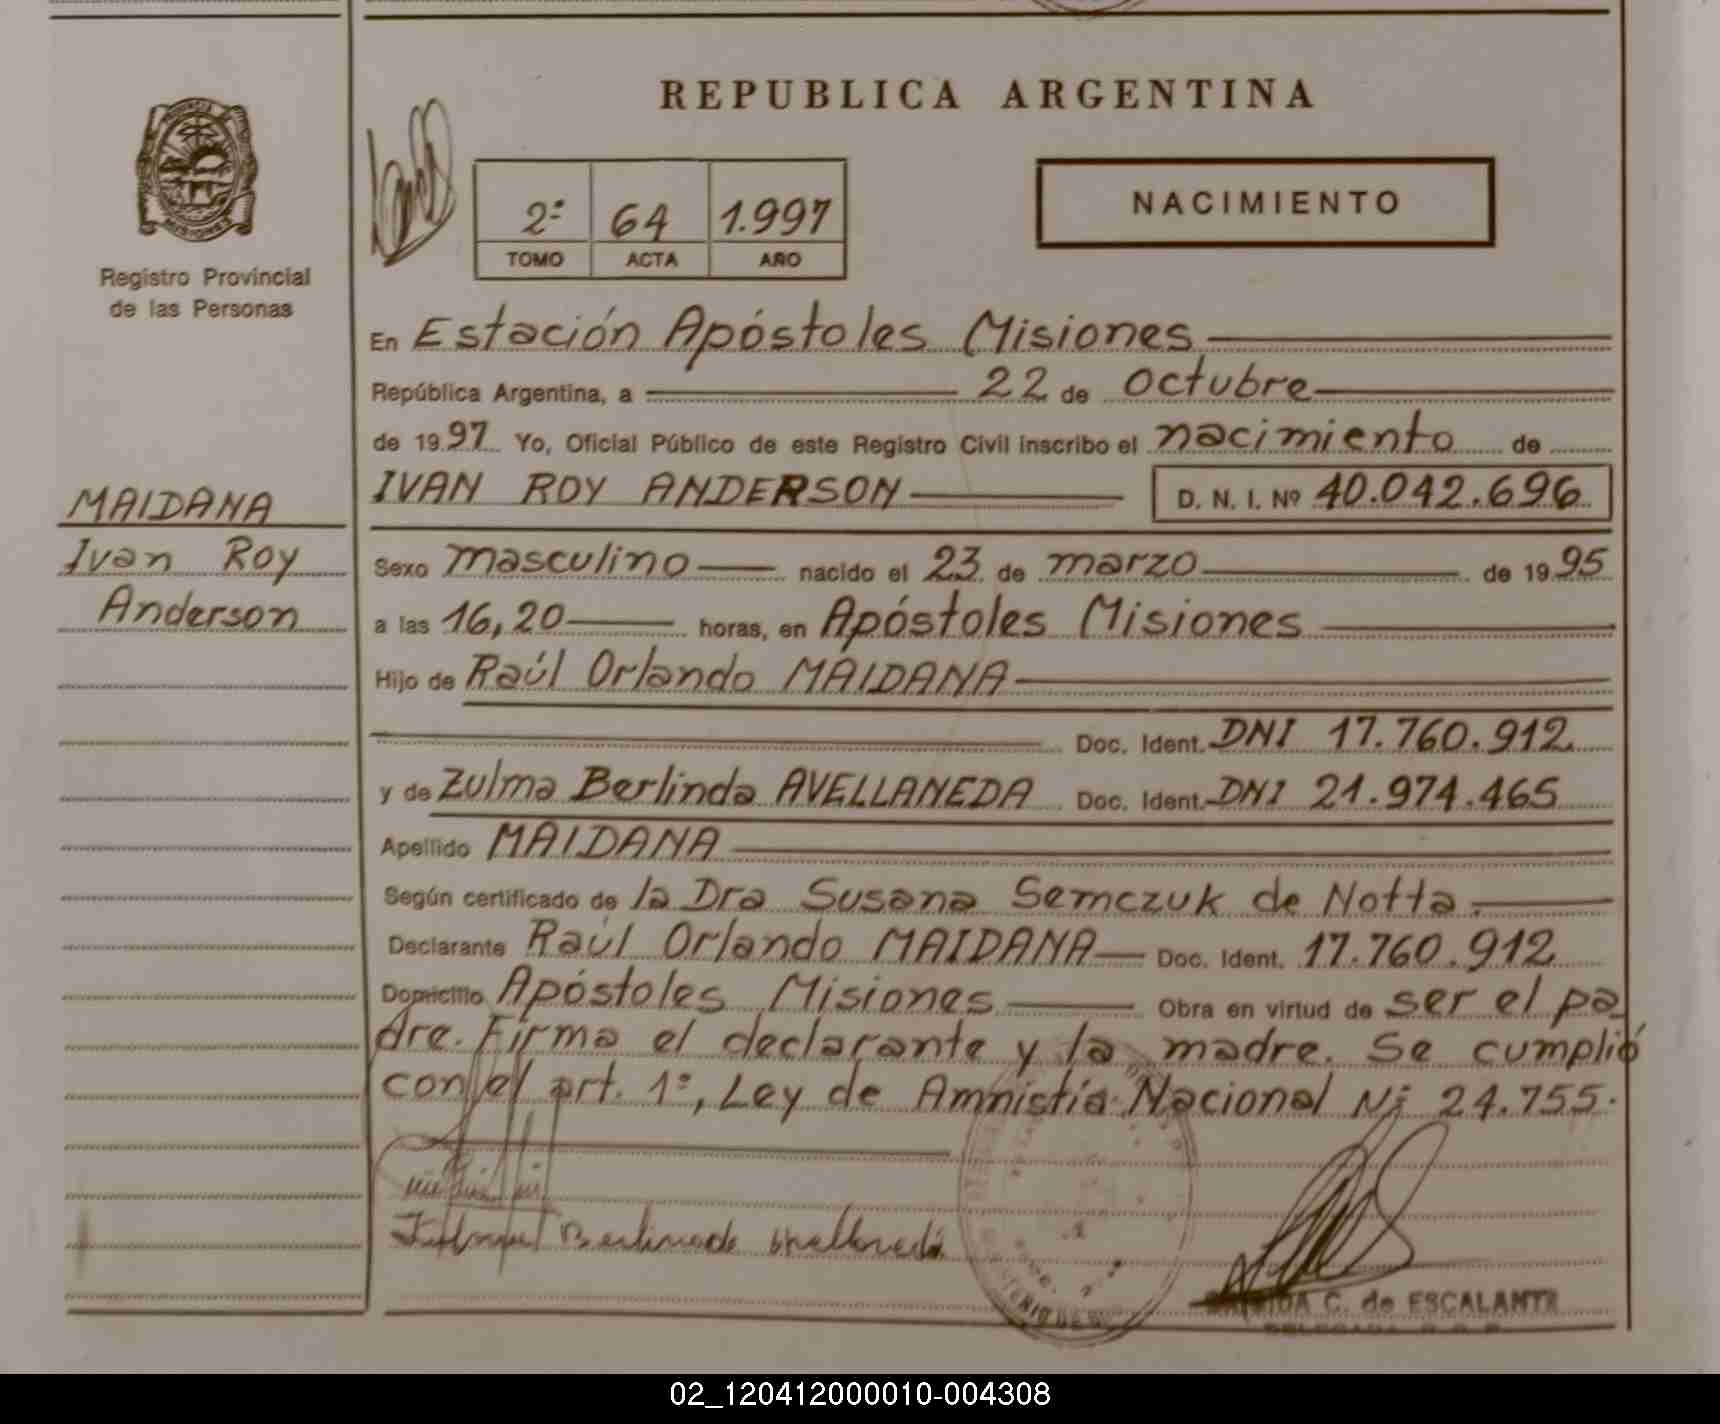 REPUBLICA ARGENTINA
Registro Provincial
de las Personas
2º 64 1.997
TOMO ACTA AÑO
NACIMIENTO
MAIDANA
Ivan Roy
Anderson
En Estación Apóstoles Misiones
República Argentina, a 22 de octubre
de 1997 Yo, Oficial Público de este Registro Civil inscribo el nacimiento de
IVAN ROY ANDERSON D. N. I. Nº 40.042.696
Sexo masculino nacido el 23 de marzo de 1995
a las 16,20 horas, en Apóstoles Misiones
Hijo de Raúl Orlando MAIDANA
Doc. Ident. DNI 17.760.912
y de Zulma Berlinda AVELLANEDA Doc. Ident. DNI 21.974.465
Apellido MAIDANA
Según certificado de la Dra Susana Semczuk de Notta.
Declarante Raúl Orlando MAIDANA Doc. Ident. 17.760.912
Domicilio Apóstoles Misiones Obra en virtud de ser el pa
dre. Firma el declarante y la madre. Se cumplió
con el art. 1º, Ley de Amnistía Nacional Nº 24.755.
C. de ESCALANTE
02_120412000010-004308